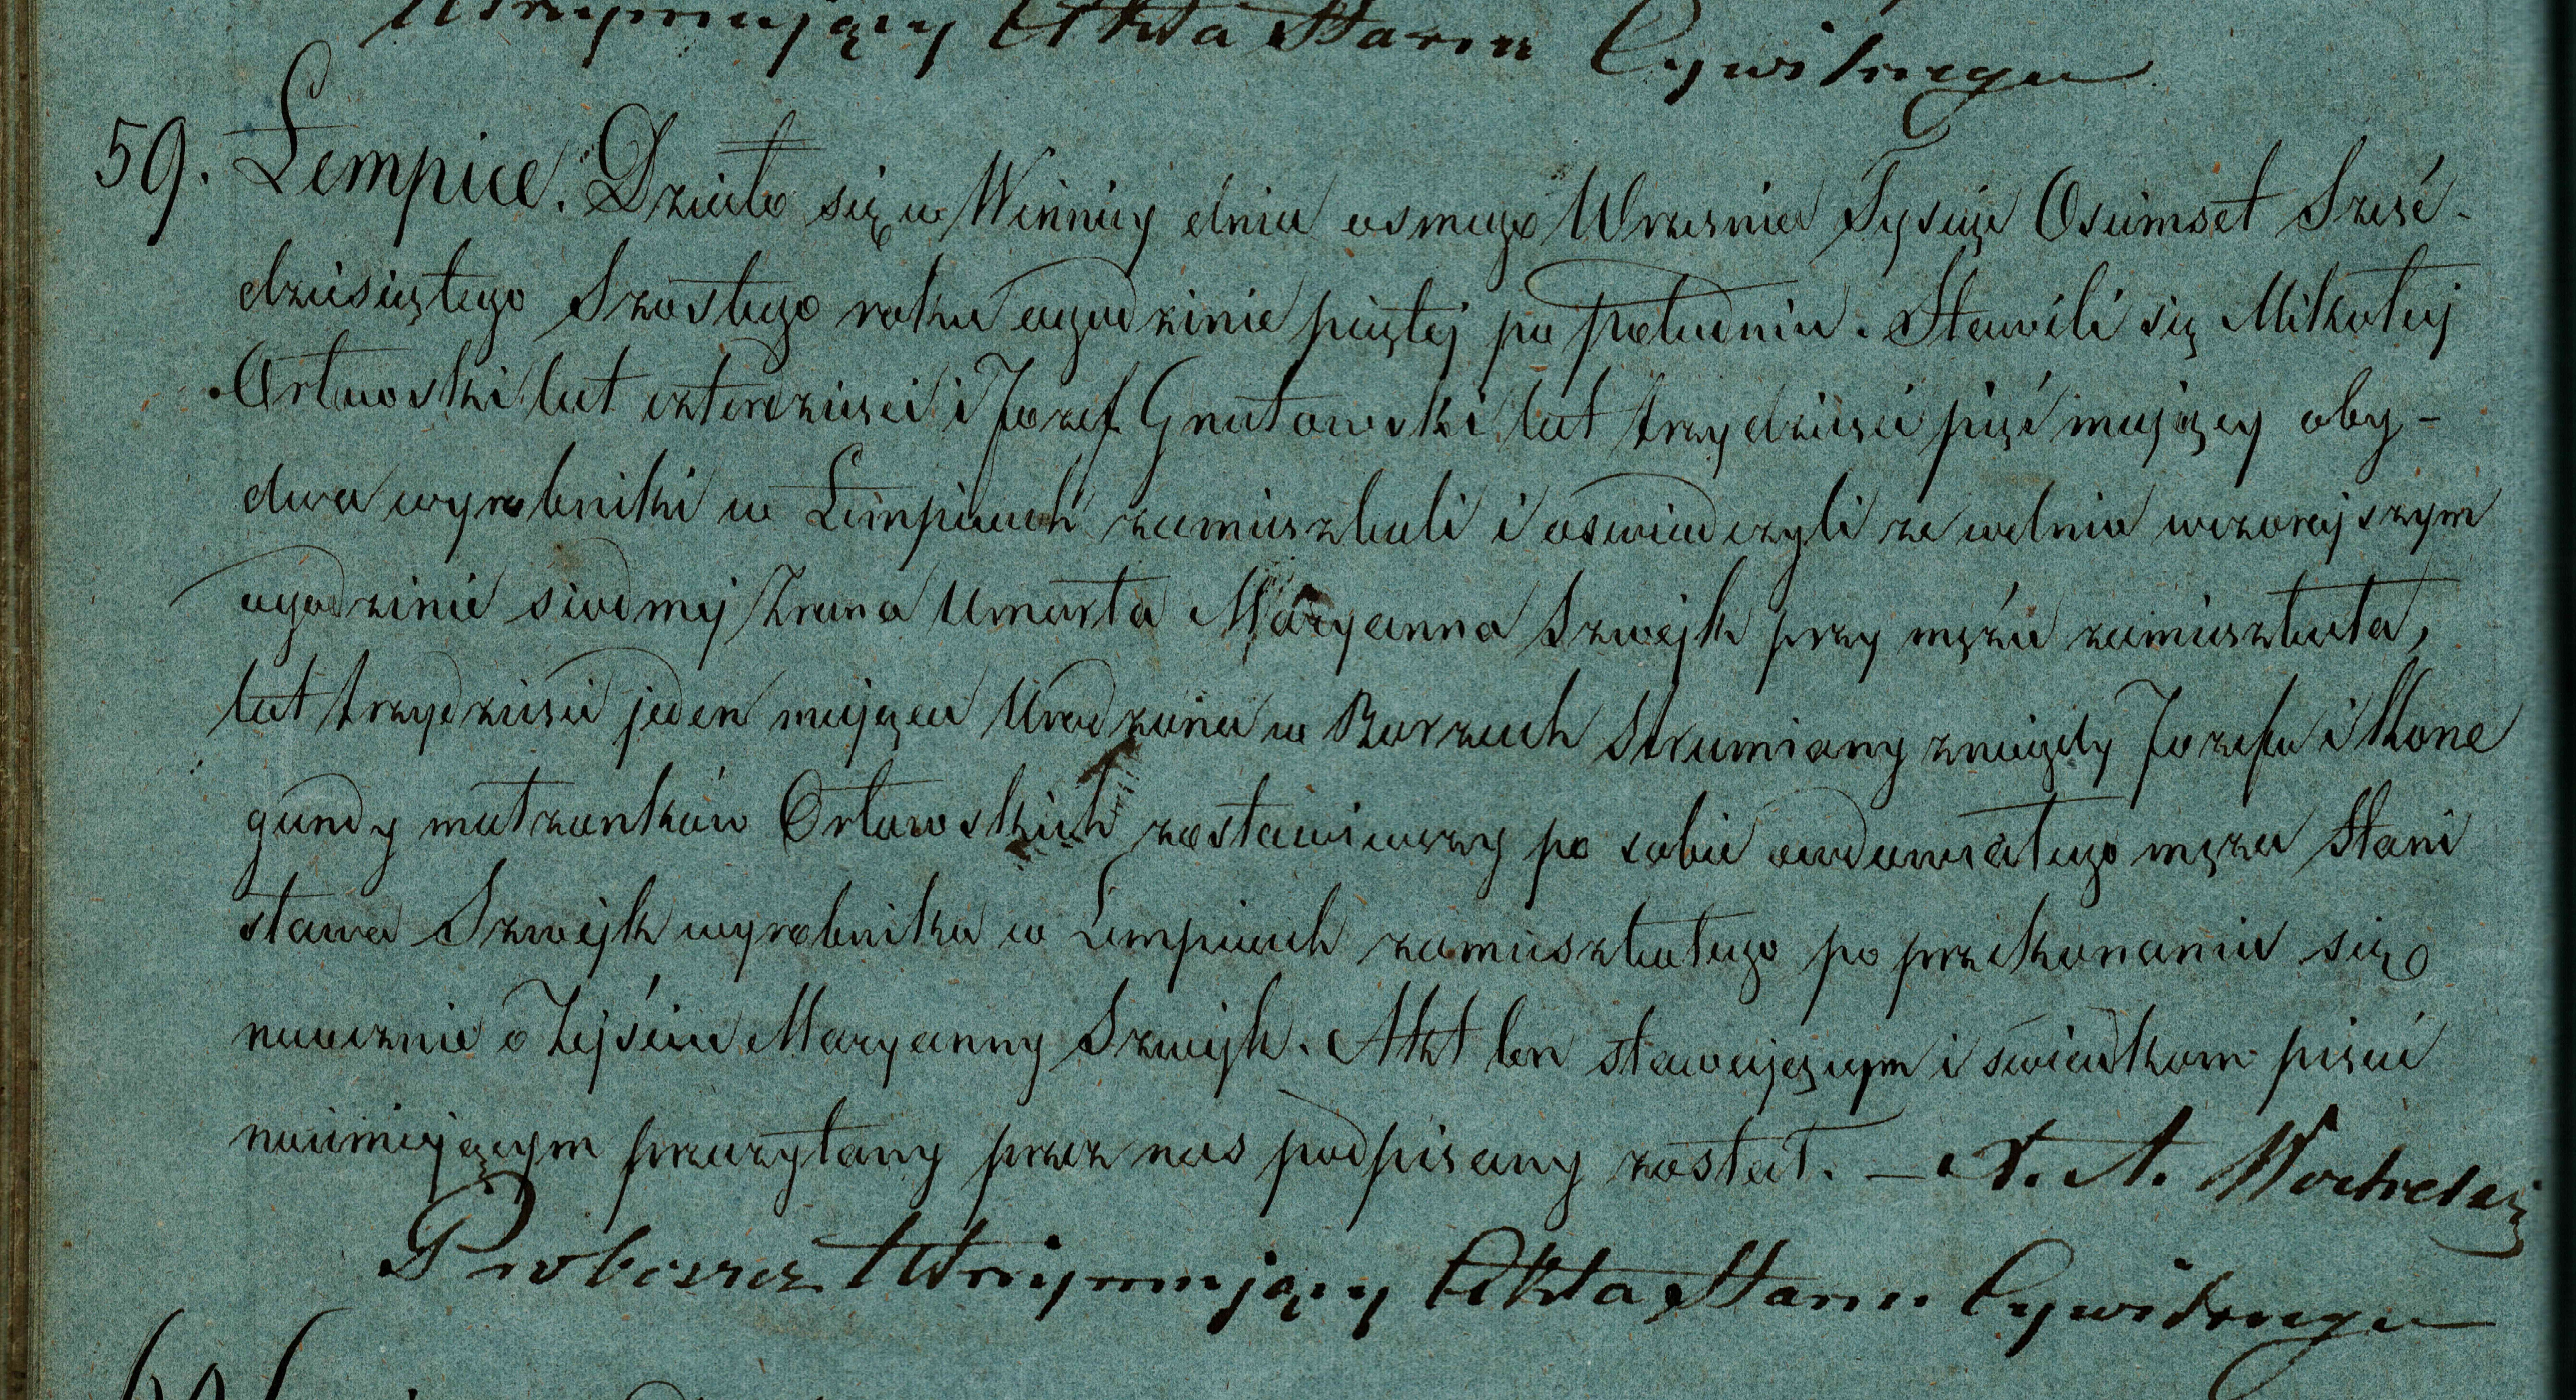 Utrzymujący Akta Stanu Cywilnego
59. Łempice. Działo się w Winnicy dnia osmego Wrzesnia Tysiąc Osiemset Sześć-
dziesiątego Szostego roku o godzinie piątej po południu. Stawili się Mikołaj
Orłowski lat czterdziesci i Jozef Gnatowski lat trzydziesci pięć mający oby-
dwa wyrobniki w Łempicach zamieszkali i oswiadczyli ze w dniu wczorajszym
o godzinie siodmej zrana Umarła Maryanna Szwejk przy mężu zamieszkała,
lat trzydziesci jeden mająca Urodzona w Borzach Strumiany zniegdy Jozefa i Kone
gundy małżonków Orłowskich zostawiwszy po sobie owdowiałego męża Stani
sława Szwejk wyrobnika w Łempicach zamieszkałego po przekonaniu się
naocznie o Zejściu Maryanny Szwejk. Akt ten stawającym i swiadkom pisać
nieumiejącym przeczytany przez nas podpisany został. — X. A.
Proboszcz Utrzymujący Akta Stanu Cywilnego